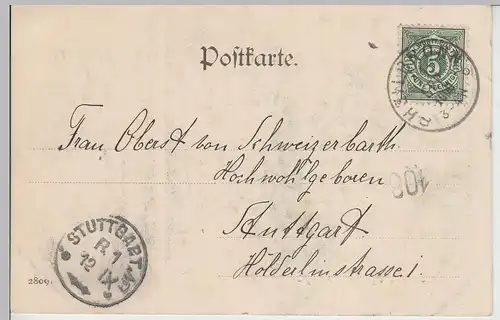 Postkarte.
5
Frau Oberst von Schweizerbarth
Hochwohlgeboren
108
Stuttgart
Hölderlinstrasse 1
STUTTGART
R. 1
12 IX
2809.